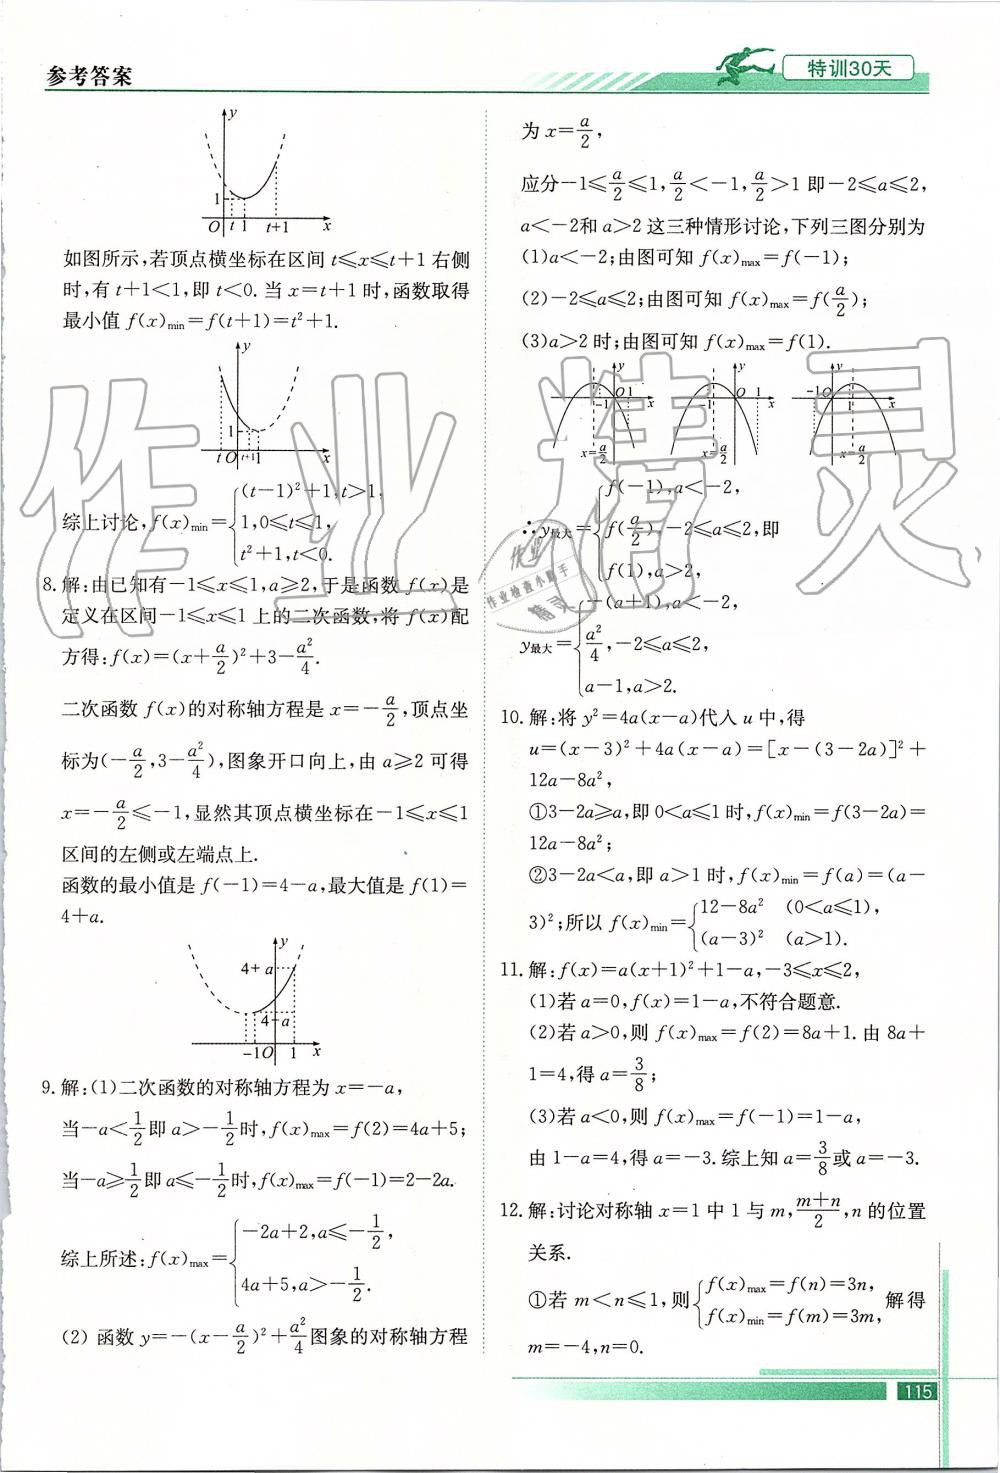 参考答案
特训30天
y
1
O t 1 t+1 x
如图所示,若顶点横坐标在区间 t≤x≤t+1 右侧
时,有 t+1<1,即 t<0. 当 x=t+1 时,函数取得
最小值 f(x)min=f(t+1)=t²+1.
y
1
t O t+1 1 x
综上讨论,f(x)min={(t-1)²+1,t>1,
1,0≤t≤1,
t²+1,t<0.
8. 解:由已知有-1≤x≤1,a≥2,于是函数 f(x)是
定义在区间-1≤x≤1 上的二次函数,将 f(x)配
方得:f(x)=(x+a/2)²+3-a²/4.
二次函数 f(x)的对称轴方程是 x=-a/2,顶点坐
标为(-a/2,3-a²/4),图象开口向上,由 a≥2 可得
x=-a/2≤-1,显然其顶点横坐标在-1≤x≤1
区间的左侧或左端点上.
函数的最小值是 f(-1)=4-a,最大值是 f(1)=
4+a.
y
4+a
4-a
-1 O 1 x
9. 解:(1)二次函数的对称轴方程为 x=-a,
当-a<1/2即 a>-1/2时,f(x)max=f(2)=4a+5;
当-a≥1/2即 a≤-1/2时,f(x)max=f(-1)=2-2a.
综上所述:f(x)max={-2a+2,a≤-1/2,
4a+5,a>-1/2.
(2) 函数 y=-(x-a/2)²+a²/4图象的对称轴方程
为 x=a/2,
应分-1≤a/2≤1,a/2<-1,a/2>1 即-2≤a≤2,
a<-2和 a>2 这三种情形讨论,下列三图分别为
(1)a<-2;由图可知 f(x)max=f(-1);
(2)-2≤a≤2;由图可知 f(x)max=f(a/2);
(3)a>2 时;由图可知 f(x)max=f(1).
y O 1 -1 x x=a/2
y O 1 -1 x x=a/2
y -1 O 1 x x=a/2
∴y最大={f(-1),a<-2,
f(a/2),-2≤a≤2,即
f(1),a>2,
y最大={-(a+1),a<-2,
a²/4,-2≤a≤2,
a-1,a>2.
10. 解:将 y²=4a(x-a)代入 u 中,得
u=(x-3)²+4a(x-a)=[x-(3-2a)]²+
12a-8a²,
①3-2a≥a,即 0<a≤1 时,f(x)min=f(3-2a)=
12a-8a²;
②3-2a<a,即 a>1 时,f(x)min=f(a)=(a-
3)²;所以 f(x)min={12-8a² (0<a≤1),
(a-3)² (a>1).
11. 解:f(x)=a(x+1)²+1-a,-3≤x≤2,
(1)若 a=0,f(x)=1-a,不符合题意.
(2)若 a>0,则 f(x)max=f(2)=8a+1. 由 8a+
1=4,得 a=3/8;
(3)若 a<0,则 f(x)max=f(-1)=1-a,
由 1-a=4,得 a=-3. 综上知 a=3/8或 a=-3.
12. 解:讨论对称轴 x=1 中 1 与 m,(m+n)/2,n 的位置
关系.
①若 m<n≤1,则{f(x)max=f(n)=3n,
f(x)min=f(m)=3m, 解得
m=-4,n=0.
115
作业精灵
作业
作业检查小助手
精灵